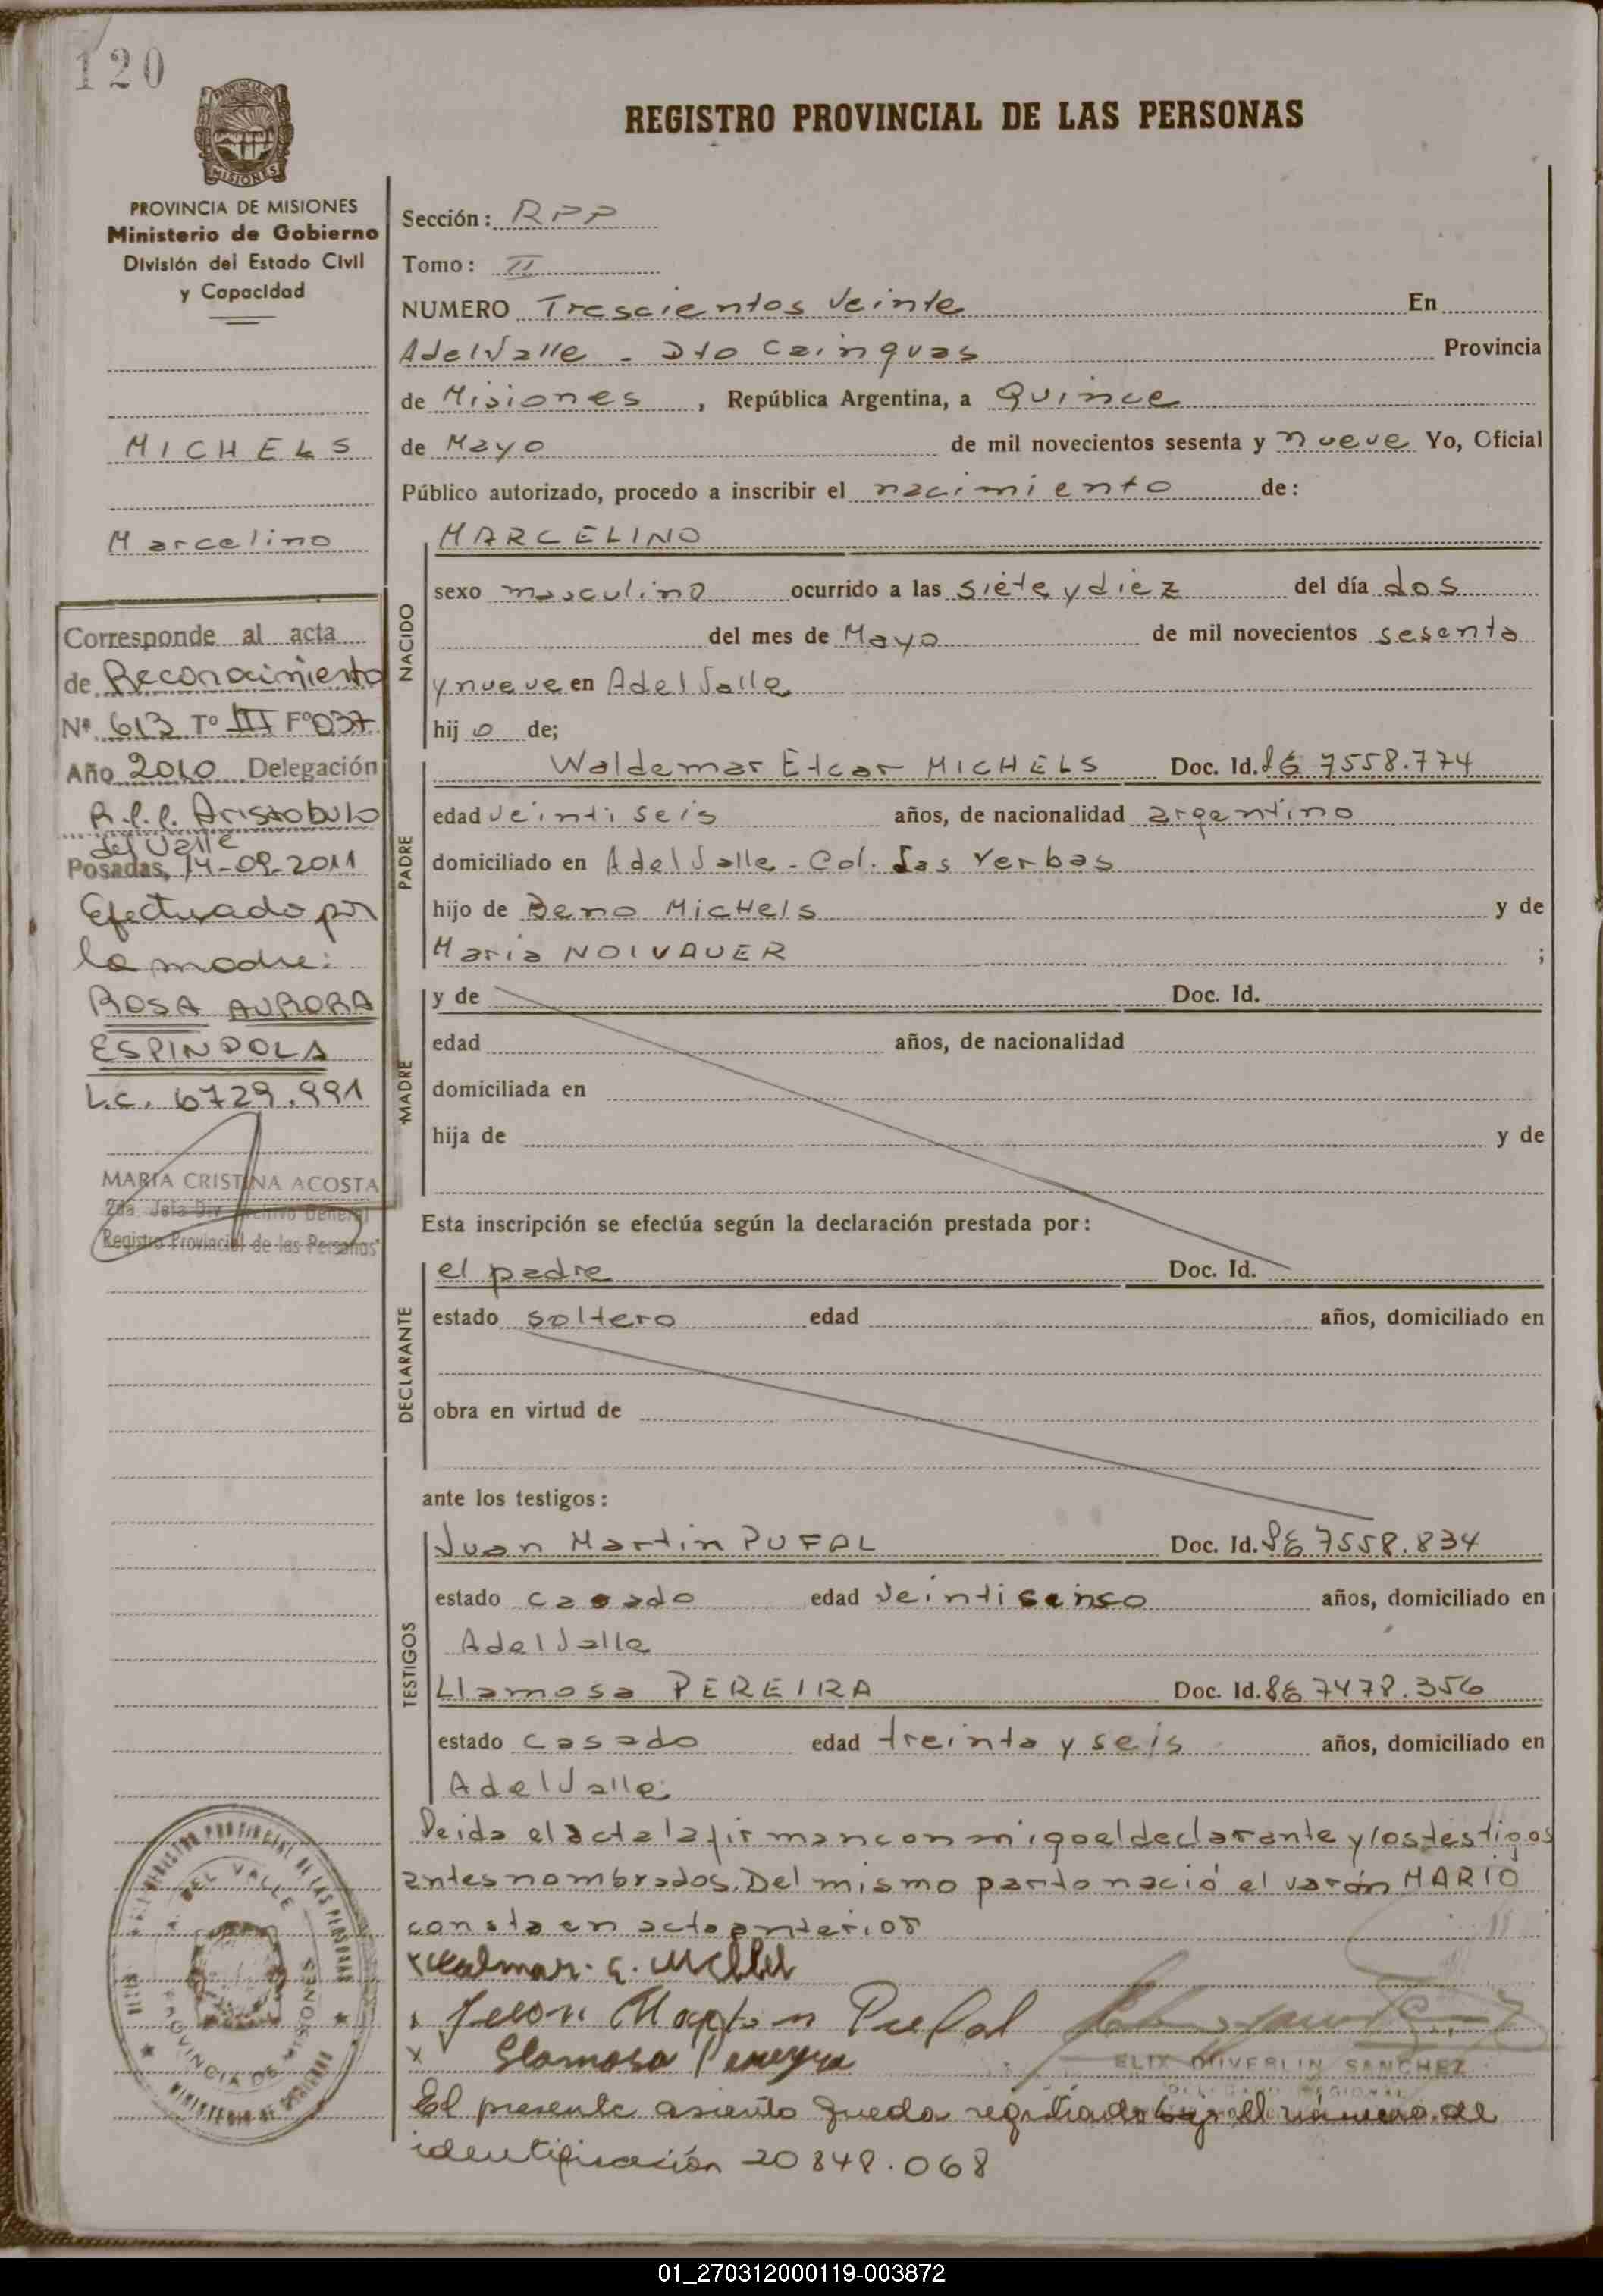 120
PROVINCIA DE MISIONES
MISIONES
PROVINCIA DE MISIONES
Ministerio de Gobierno
División del Estado Civil
y Capacidad
MICHELS
Marcelino
Corresponde al acta
de Reconocimiento
Nº 613 Tº III Fº 037
Año 2010 Delegación
R.P.P. Aristobulo
del Valle
Posadas, 14-09-2011
Efectuado por
la madre:
ROSA AURORA
ESPINDOLA
L.C. 6729.991
MARIA CRISTINA ACOSTA
2da. Jefa Div. Archivo General
Registro Provincial de las Personas
REGISTRO PROVINCIAL DE LAS PERSONAS
Sección: RPP
Tomo: II
NUMERO Trescientos Veinte En
AdelValle - Dto Cainguas Provincia
de Misiones, República Argentina, a Quince
de Mayo de mil novecientos sesenta y nueve Yo, Oficial
Público autorizado, procedo a inscribir el nacimiento de:
NACIDO
MARCELINO
sexo masculino ocurrido a las siete y diez del día dos
del mes de Mayo de mil novecientos sesenta
y nueve en AdelValle
hijo de;
PADRE
Waldemar Etcar MICHELS Doc. Id. 7558.774
edad veintiseis años, de nacionalidad argentino
domiciliado en AdelValle - Col. Las Yerbas
hijo de Beno MicHels y de
Maria NOIVAUER ;
MADRE
y de Doc. Id.
edad años, de nacionalidad
domiciliada en
hija de y de
Esta inscripción se efectúa según la declaración prestada por:
DECLARANTE
el padre Doc. Id.
estado soltero edad años, domiciliado en
obra en virtud de
ante los testigos:
TESTIGOS
Juan Martin PUFAL Doc. Id. 7558.834
estado casado edad Veinticinco años, domiciliado en
AdelValle
Llamosa PEREIRA Doc. Id. 7478.356
estado casado edad treinta y seis años, domiciliado en
AdelValle
Leida el acta la firman conmigo el declarante y los testigos
antes nombrados. Del mismo parto nació el varón MARIO
consta en acta anterior
Juan Martin Pufal
Glamosa Pereyra
ELIX DUVERLIN SANCHEZ
DELEGADO REGIONAL
El presente asiento queda registrado bajo el número de
identificación 20848.068
REGISTRO PROVINCIAL DE LAS PERSONAS
A. DEL VALLE
PROVINCIA DE MISIONES
MINISTERIO DE GOBIERNO
01_270312000119-003872